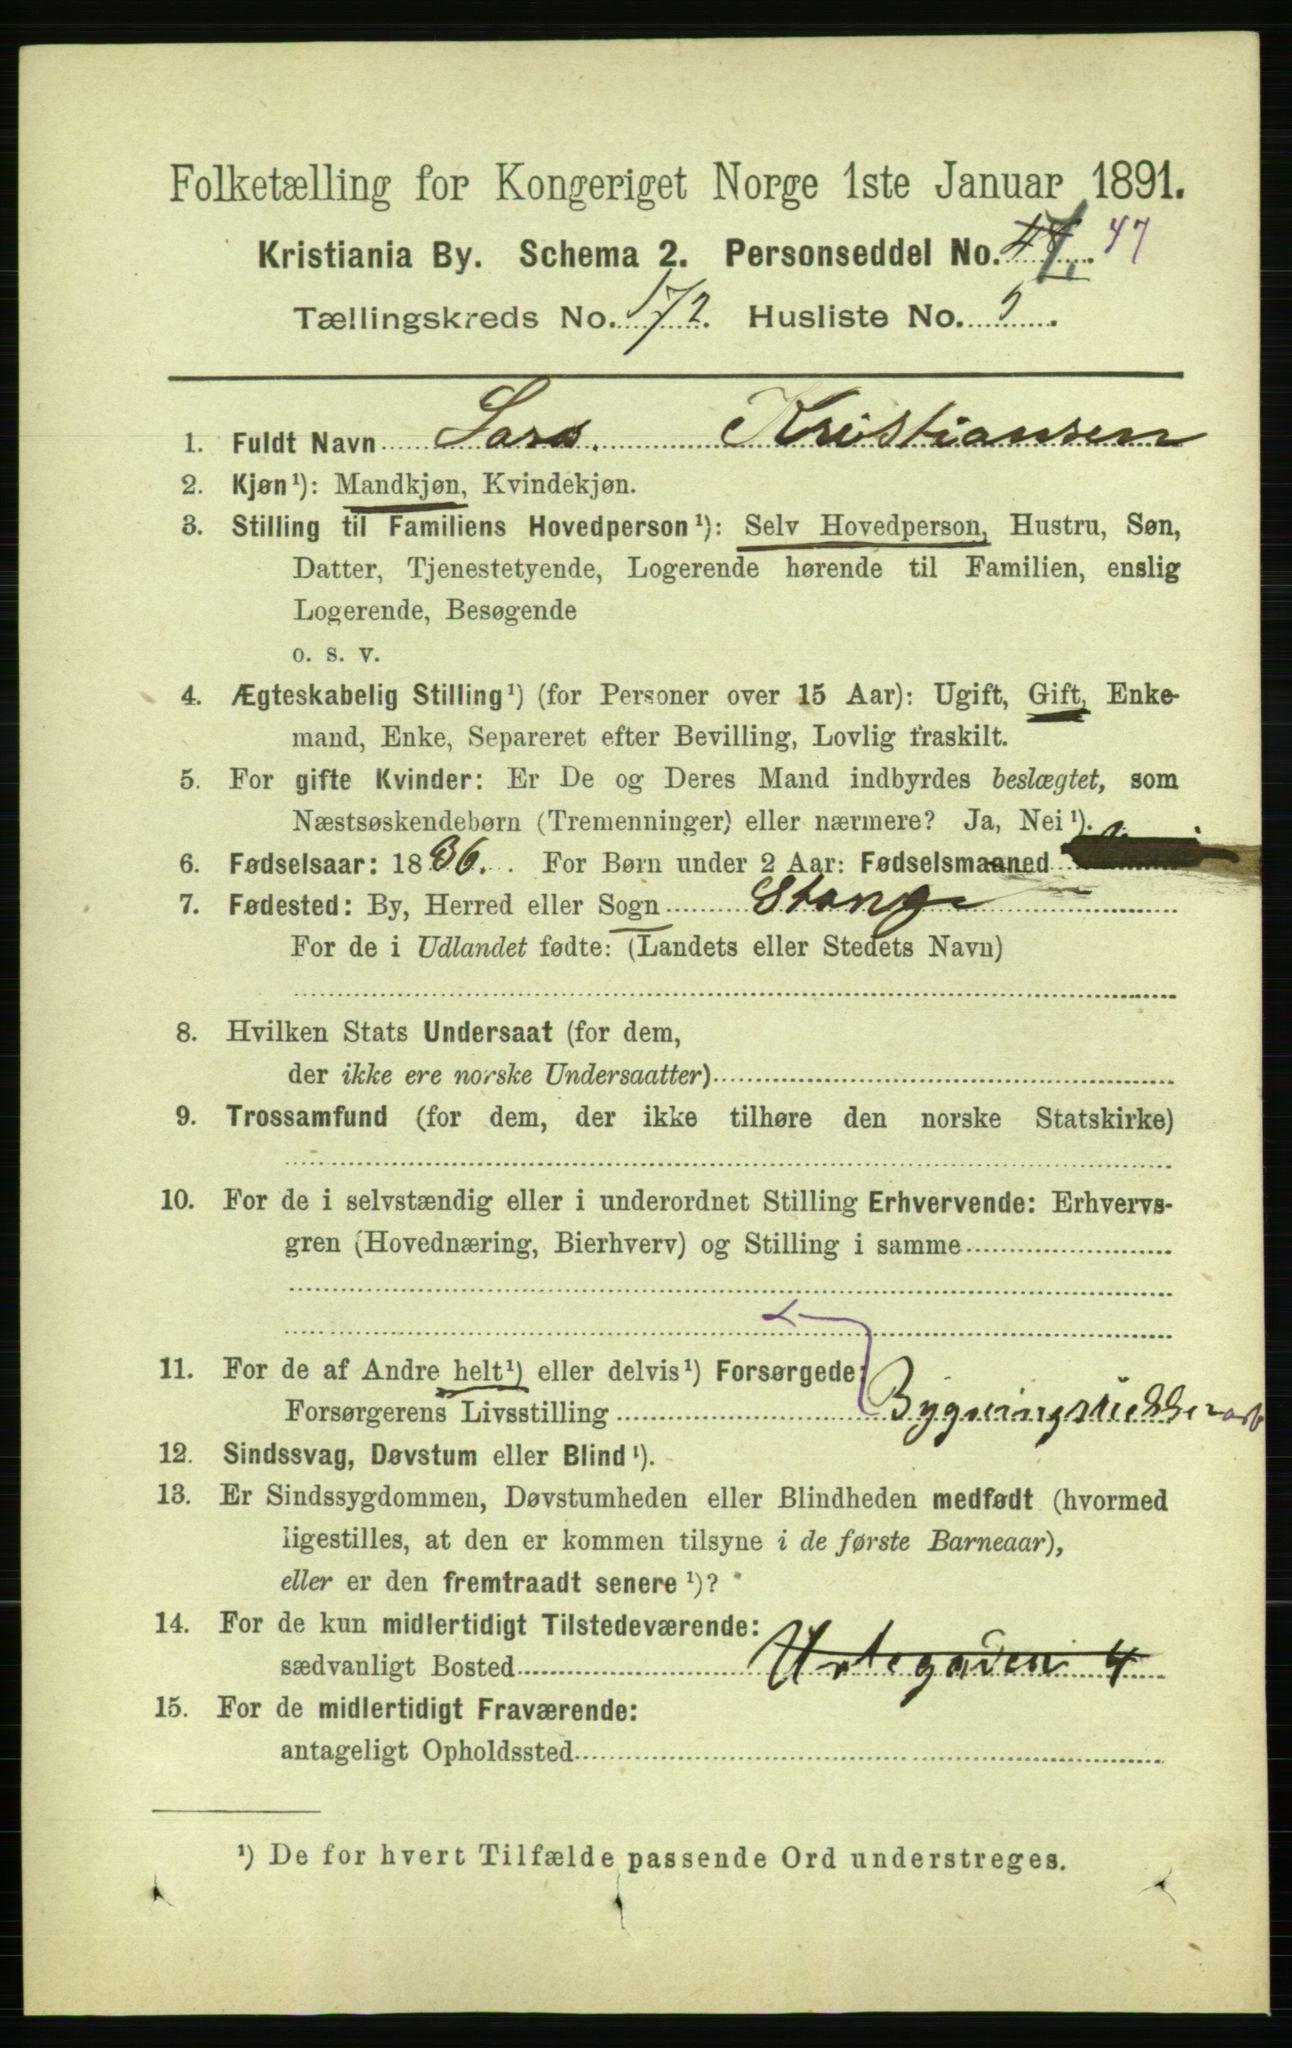 Folketælling for Kongeriget Norge 1ste Januar 1891.
Kristiania By. Schema 2. Personseddel No. 47
Tællingskreds No. 172. Husliste No. 5.
1. Fuldt Navn Lars. Kristiansen
2. Kjøn¹): Mandkjøn, Kvindekjøn.
3. Stilling til Familiens Hovedperson¹): Selv Hovedperson, Hustru, Søn,
Datter, Tjenestetyende, Logerende hørende til Familien, enslig
Logerende, Besøgende
o. s. v.
4. Ægteskabelig Stilling¹) (for Personer over 15 Aar): Ugift, Gift, Enke-
mand, Enke, Separeret efter Bevilling, Lovlig fraskilt.
5. For gifte Kvinder: Er De og Deres Mand indbyrdes beslægtet, som
Næstsøskendebørn (Tremenninger) eller nærmere? Ja, Nei¹).
6. Fødselsaar: 1836. For Børn under 2 Aar: Fødselsmaaned
7. Fødested: By, Herred eller Sogn Stange
For de i Udlandet fødte: (Landets eller Stedets Navn)
8. Hvilken Stats Undersaat (for dem,
der ikke ere norske Undersaatter)
9. Trossamfund (for dem, der ikke tilhøre den norske Statskirke)
10. For de i selvstændig eller i underordnet Stilling Erhvervende: Erhvervs-
gren (Hovednæring, Bierhverv) og Stilling i samme
11. For de af Andre helt¹) eller delvis¹) Forsørgede:
Forsørgerens Livsstilling
12. Sindssvag, Døvstum eller Blind¹).
13. Er Sindssygdommen, Døvstumheden eller Blindheden medfødt (hvormed
ligestilles, at den er kommen tilsyne i de første Barneaar),
eller er den fremtraadt senere¹)?
14. For de kun midlertidigt Tilstedeværende:
sædvanligt Bosted Urtegaden 4
15. For de midlertidigt Fraværende:
antageligt Opholdssted
¹) De for hvert Tilfælde passende Ord understreges.